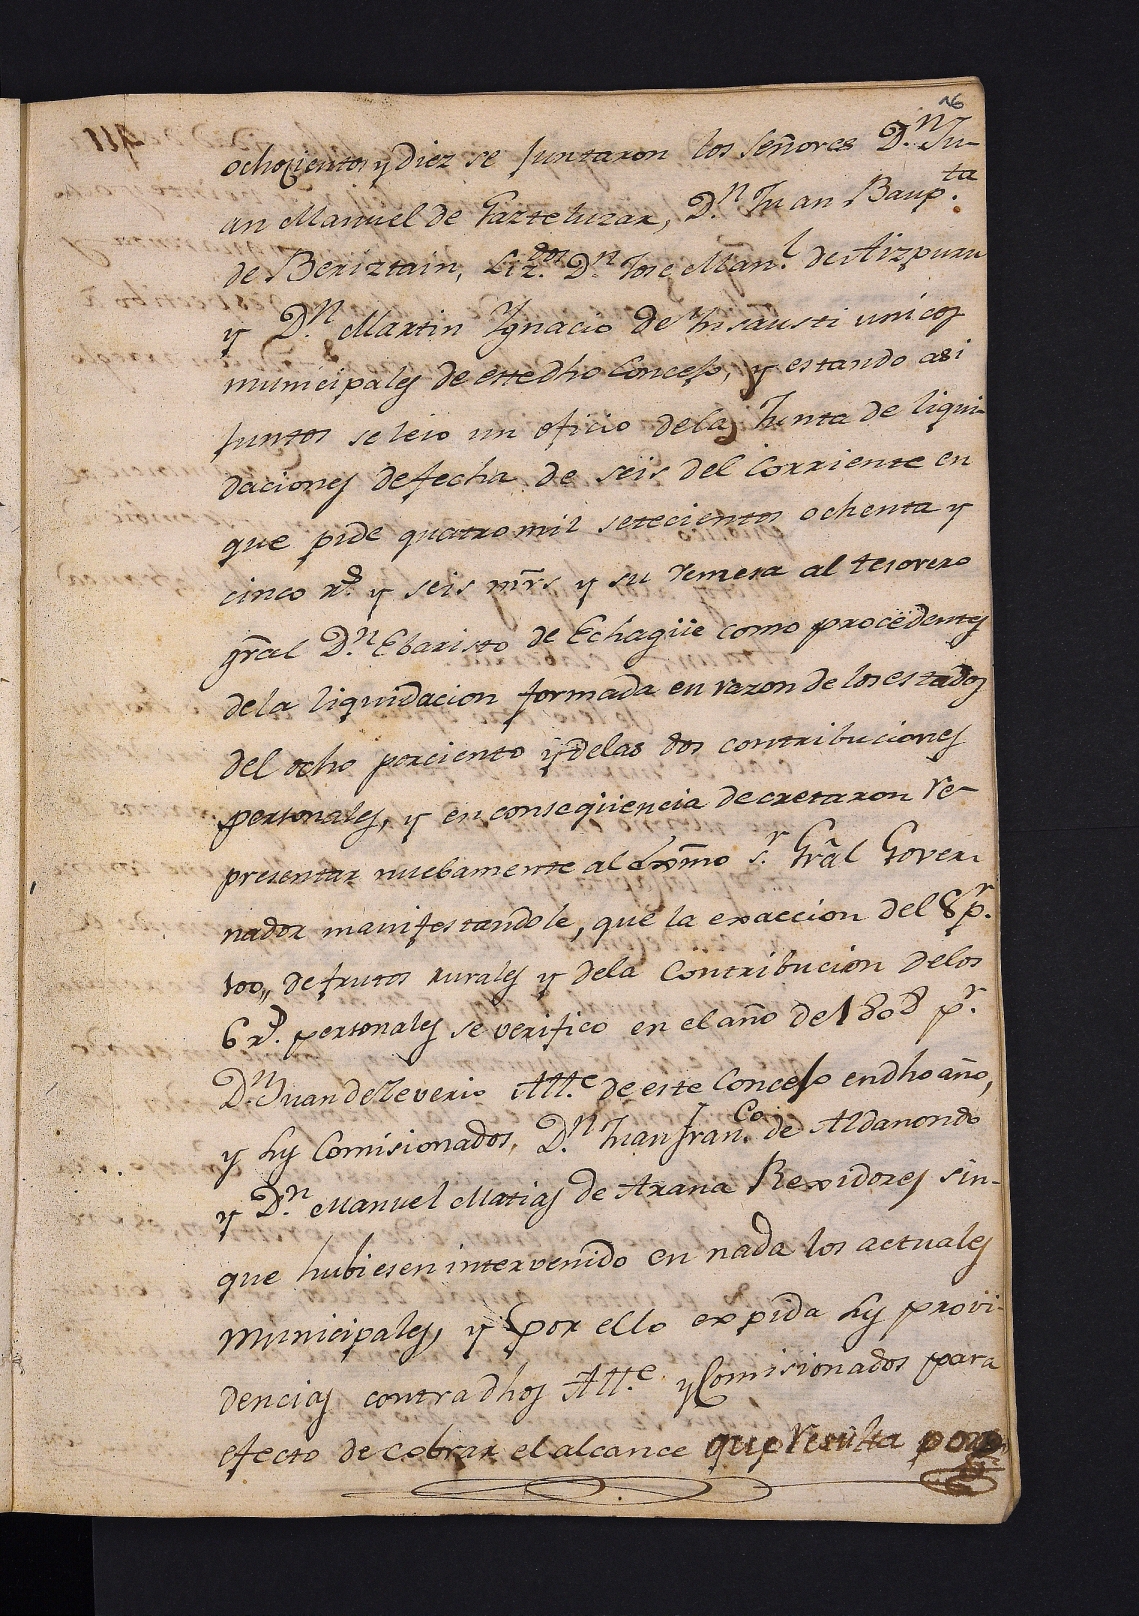 26
ochocientos y Diez se Juntaron los Señores D.n Ju-
an Manuel de Gazteluzar, D.n Juan Baup.ta
de Beriztain, Liz.dos D.n Jose Man.l de Aizpuru
y D.n Martin Ygnacio de Insausti unicos
municipales de este dho Concejo, y estando asi
Juntos se leio un oficio dela Junta de liqui-
daciones de fecha de seis del Corriente en
que pide quatro mil setecientos ochenta y
cinco r.s y seis mrs y su remesa al tesorero
gral D.n Ebaristo de Echagüe como procedentes
dela liquidacion formada en razon de los estados
del ocho porciento y delas dos contribuciones
personales, y en conseqüencia decretaron re-
presentar nuebamente al Exmo S.r Gral Gover-
nador manifestandole, que la exaccion del 8 p.r
100,, de frutos rurales y dela Contribucion delos
6 r.s personales se verifico en el año de 1808 p.r
D.n Juan de Zeverio Alle.e de este Concejo en dho año,
y sus Comisionados, D.n Juan Fran.co de Aldanondo
y D.n Manuel Matias de Arana Rexidores sin-
que hubiesen intervenido en nada los actuales
Municipales, y por ello expida las provi-
dencias contra dhos Alle.e y Comisionados para
efecto de cobrar el alcance que resulta por